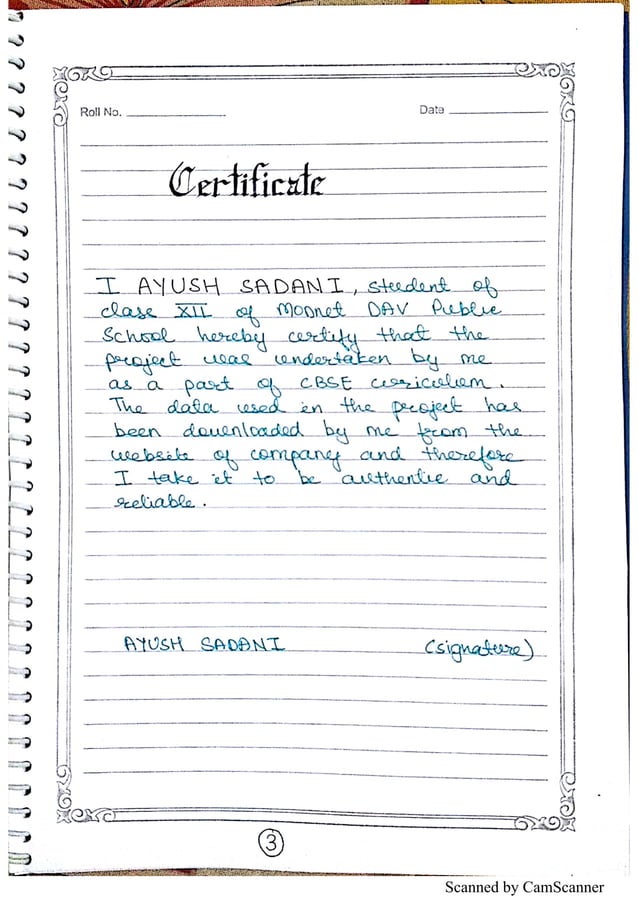 Roll No.
Date
Certificate
I AYUSH SADANI, student of
class XII of Modnet DAV Public
School hereby certify that the
project was undertaken by me
as a part of CBSE curriculum.
The data used in the project has
been downloaded by me from the
website of company and therefore
I take it to be authentic and
reliable.
AYUSH SADANI (signature)
3
Scanned by CamScanner